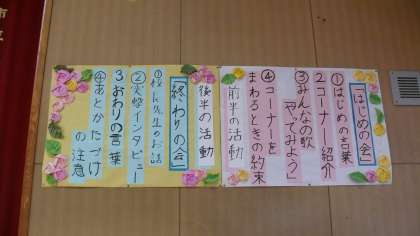 「はじめの会」
①はじめの言葉
2コーナー紹介
③みんなの歌
「やってみよう」
④コーナーを
まわるときの約束
前半の活動
後半の活動
「終わりの会」
①校長先生のお話
②突撃インタビュー
3おわりの言葉
④あとかたづけ
の注意